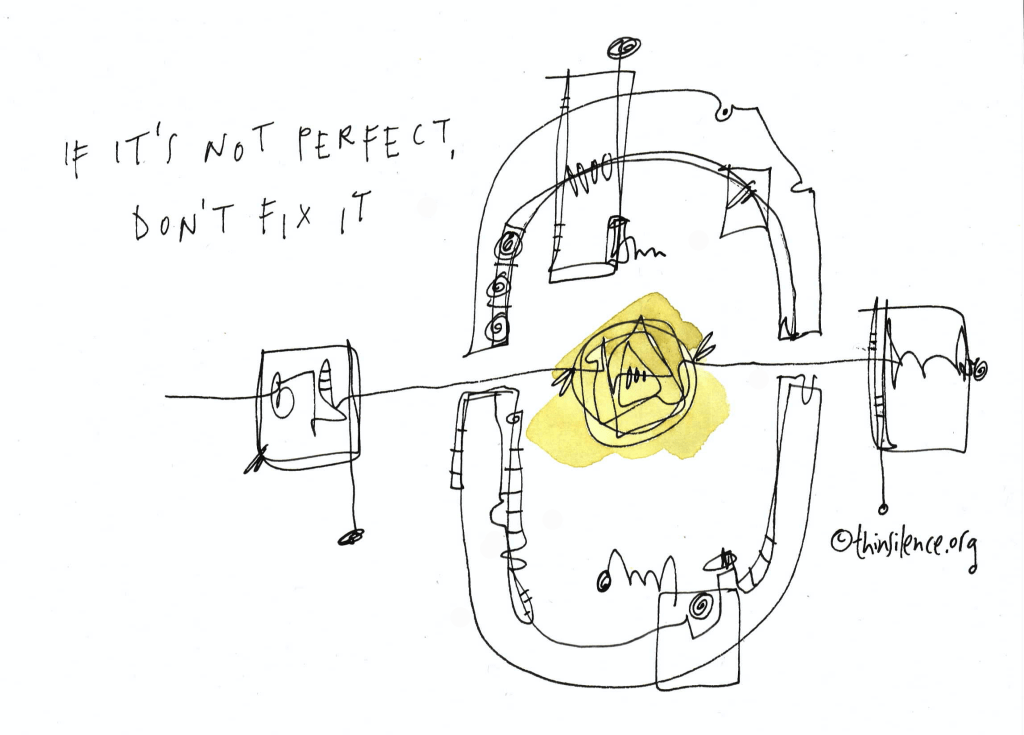 IF IT'S NOT PERFECT,
DON'T FIX IT
©thinsilence.org